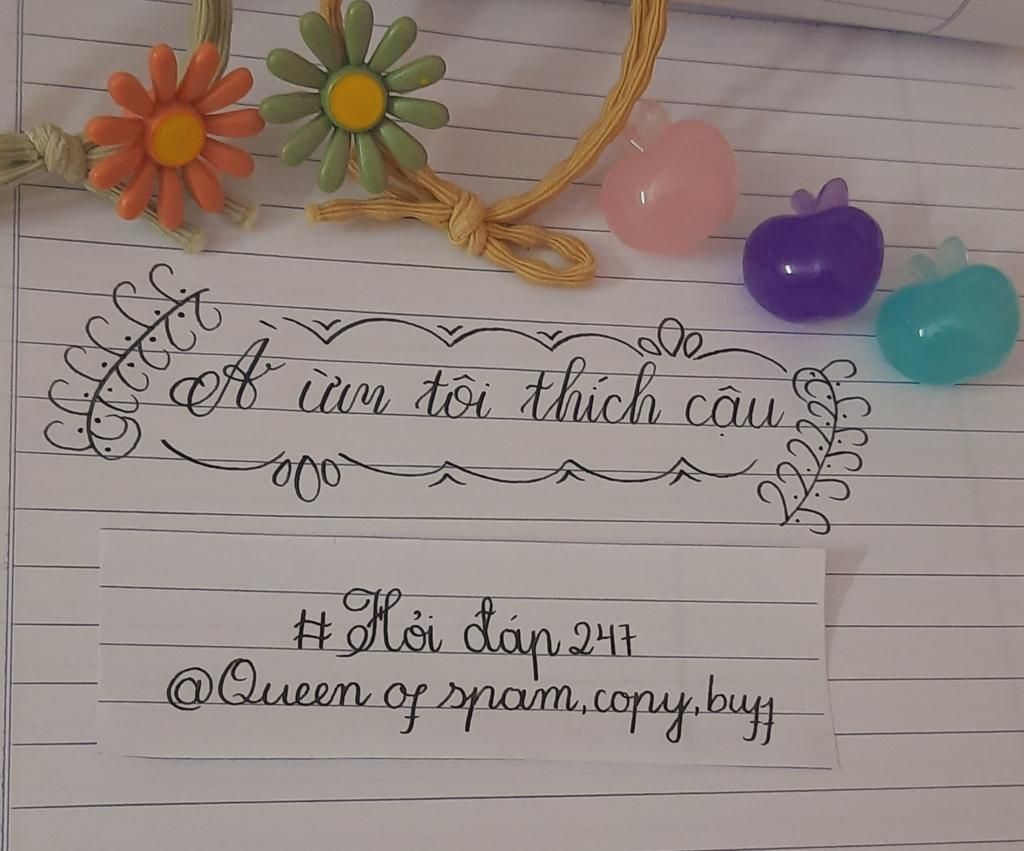 À ừm tôi thích cậu
#Hỏi đáp 247
@Queen of spam,copy,buff